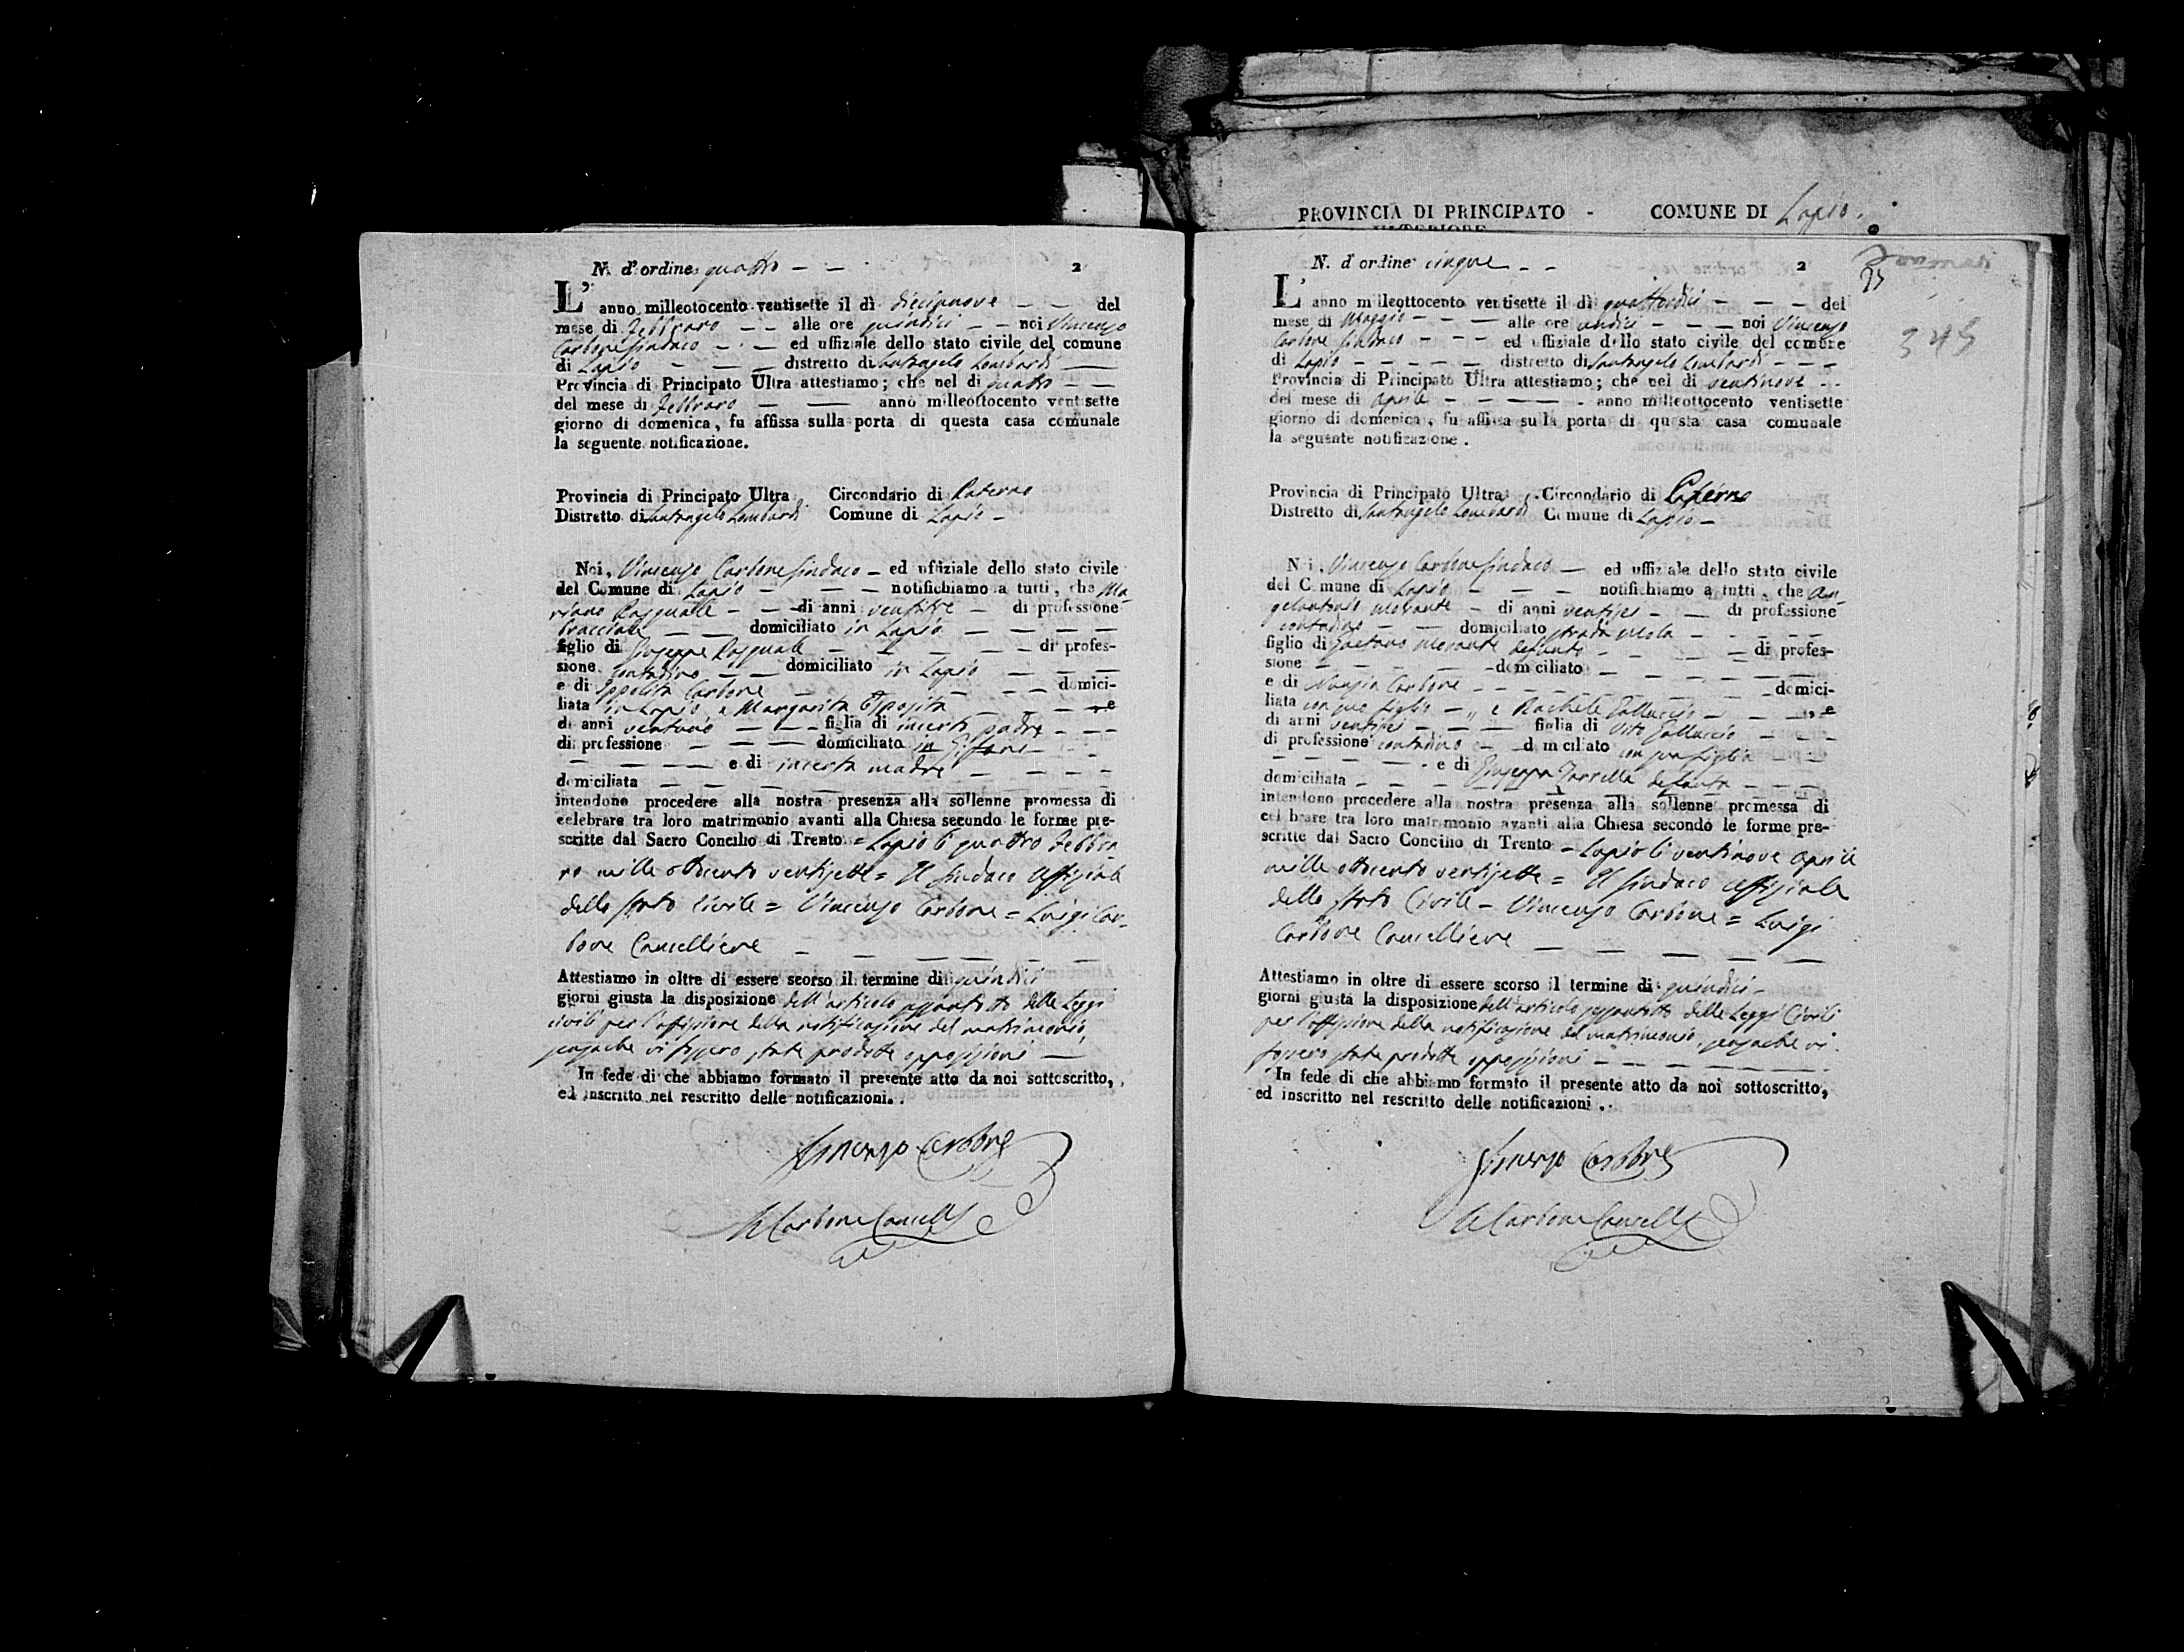 PROVINCIA DI PRINCIPATO - COMUNE DI Lapio.
ULTERIORE
N. d'ordine quattro
2
L'anno milleotocento ventisette il dì diecinove del
mese di Febbraro alle ore quindici noi Vincenzo
Carbone Sindaco ed uffiziale dello stato civile del comune
di Lapio distretto di Santangelo Lombardi
Provincia di Principato Ultra attestiamo; che nel di quattro
del mese di Febbraro anno milleottocento ventisette
giorno di domenica, fu affissa sulla porta di questa casa comunale
la seguente notificazione.
Provincia di Principato Ultra Circondario di Paterno
Distretto di Santangelo Lombardi Comune di Lapio
Noi, Vincenzo Carbone Sindaco ed uffiziale dello stato civile
del Comune di Lapio notifichiamo a tutti, che Ma-
riano Pasquale di anni di professione
bracciale domiciliato in Lapio
figlio di Giuseppe Pasquale di profes-
sione contadino domiciliato in Lapio
e di Ippolita Carbone domici-
liata in Lapio e Margarita Esposita e
di anni ventuno figlia di incerto padre
di professione domiciliato in
e di incerta madre
domiciliata
intendono procedere alla nostra presenza alla sollenne promessa di
celebrare tra loro matrimonio avanti alla Chiesa secundo le forme pre-
scritte dal Sacro Concilio di Trento = Lapio li quattro Febbra
ro mille ottocento ventisette = Il Sindaco Uffiziale
dello Stato Civile = Vincenzo Carbone = Luigi Car-
bone Cancelliere
Attestiamo in oltre di essere scorso il termine di quindici
giorni giusta la disposizione dell'articolo sessantotto delle Leggi
civili per l'affissione della notificazione del matrimonio,
senzache vi fossero state prodotte opposizioni
In fede di che abbiamo formato il presente atto da noi sottoscritto,
ed inscritto nel rescritto delle notificazioni.
Vincenzo Carbone
Carbone Cancell
N. d'ordine cinque
2
345
L'anno milleottocento ventisette il dì quattordici del
mese di Maggio alle ore undici noi Vincenzo
Carbone Sindaco ed uffiziale dello stato civile del comune
di Lapio distretto di Santangelo Lombardi
Provincia di Principato Ultra attestiamo; che nel di ventinove
del mese di Aprile anno milleottocento ventisette
giorno di domenica, fu affissa sulla porta di questa casa comunale
la seguente notificazione.
Provincia di Principato Ultra Circondario di Paterno
Distretto di Santangelo Lombardi Comune di Lapio
Noi, Vincenzo Carbone Sindaco ed uffiziale dello stato civile
del Comune di Lapio notifichiamo a tutti, che An-
gelantonio Morante di anni ventisei di professione
contadino domiciliato strada Mola
figlio di Gaetano Morante defunto di profes-
sione domiciliato
e di Nunzia Carbone domici-
liata con suo figlio e Rachele Galluccio e
di anni ventisei figlia di Vito Galluccio
di professione contadino domiciliato con sua figlia
e di Giuseppa defunta
domiciliata
intendono procedere alla nostra presenza alla sollenne promessa di
celebrare tra loro matrimonio avanti alla Chiesa secondo le forme pre-
scritte dal Sacro Concilio di Trento = Lapio li ventinove Aprile
mille ottocento ventisette = Il Sindaco Uffiziale
dello Stato Civile = Vincenzo Carbone = Luigi
Carbone Cancelliere
Attestiamo in oltre di essere scorso il termine di quindici
giorni giusta la disposizione dell'articolo sessantotto delle Leggi Civili
per l'affissione della notificazione del matrimonio, senzache vi
fossero state prodotte opposizioni
In fede di che abbiamo formato il presente atto da noi sottoscritto,
ed inscritto nel rescritto delle notificazioni.
Vincenzo Carbone
Carbone Cancell